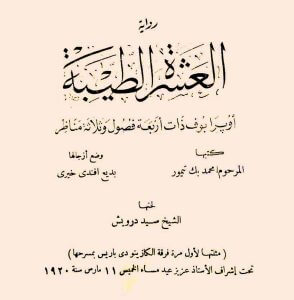 رواية
العشرة الطيبة
أوپرا بوف ذات أربعة فصول وثلاثة مناظر
كتبها
وضع أزجالها
المرحوم محمد بك تيمور
بديع افندى خيرى
لحنها
الشيخ سيد درويش
( مثلتها لأول مرة فرقة الكازينو دى باريس بمسرحها )
تحت إشراف الأستاذ عزيز عيد مساء الخميس ١١ مارس سنة ١٩٢٠